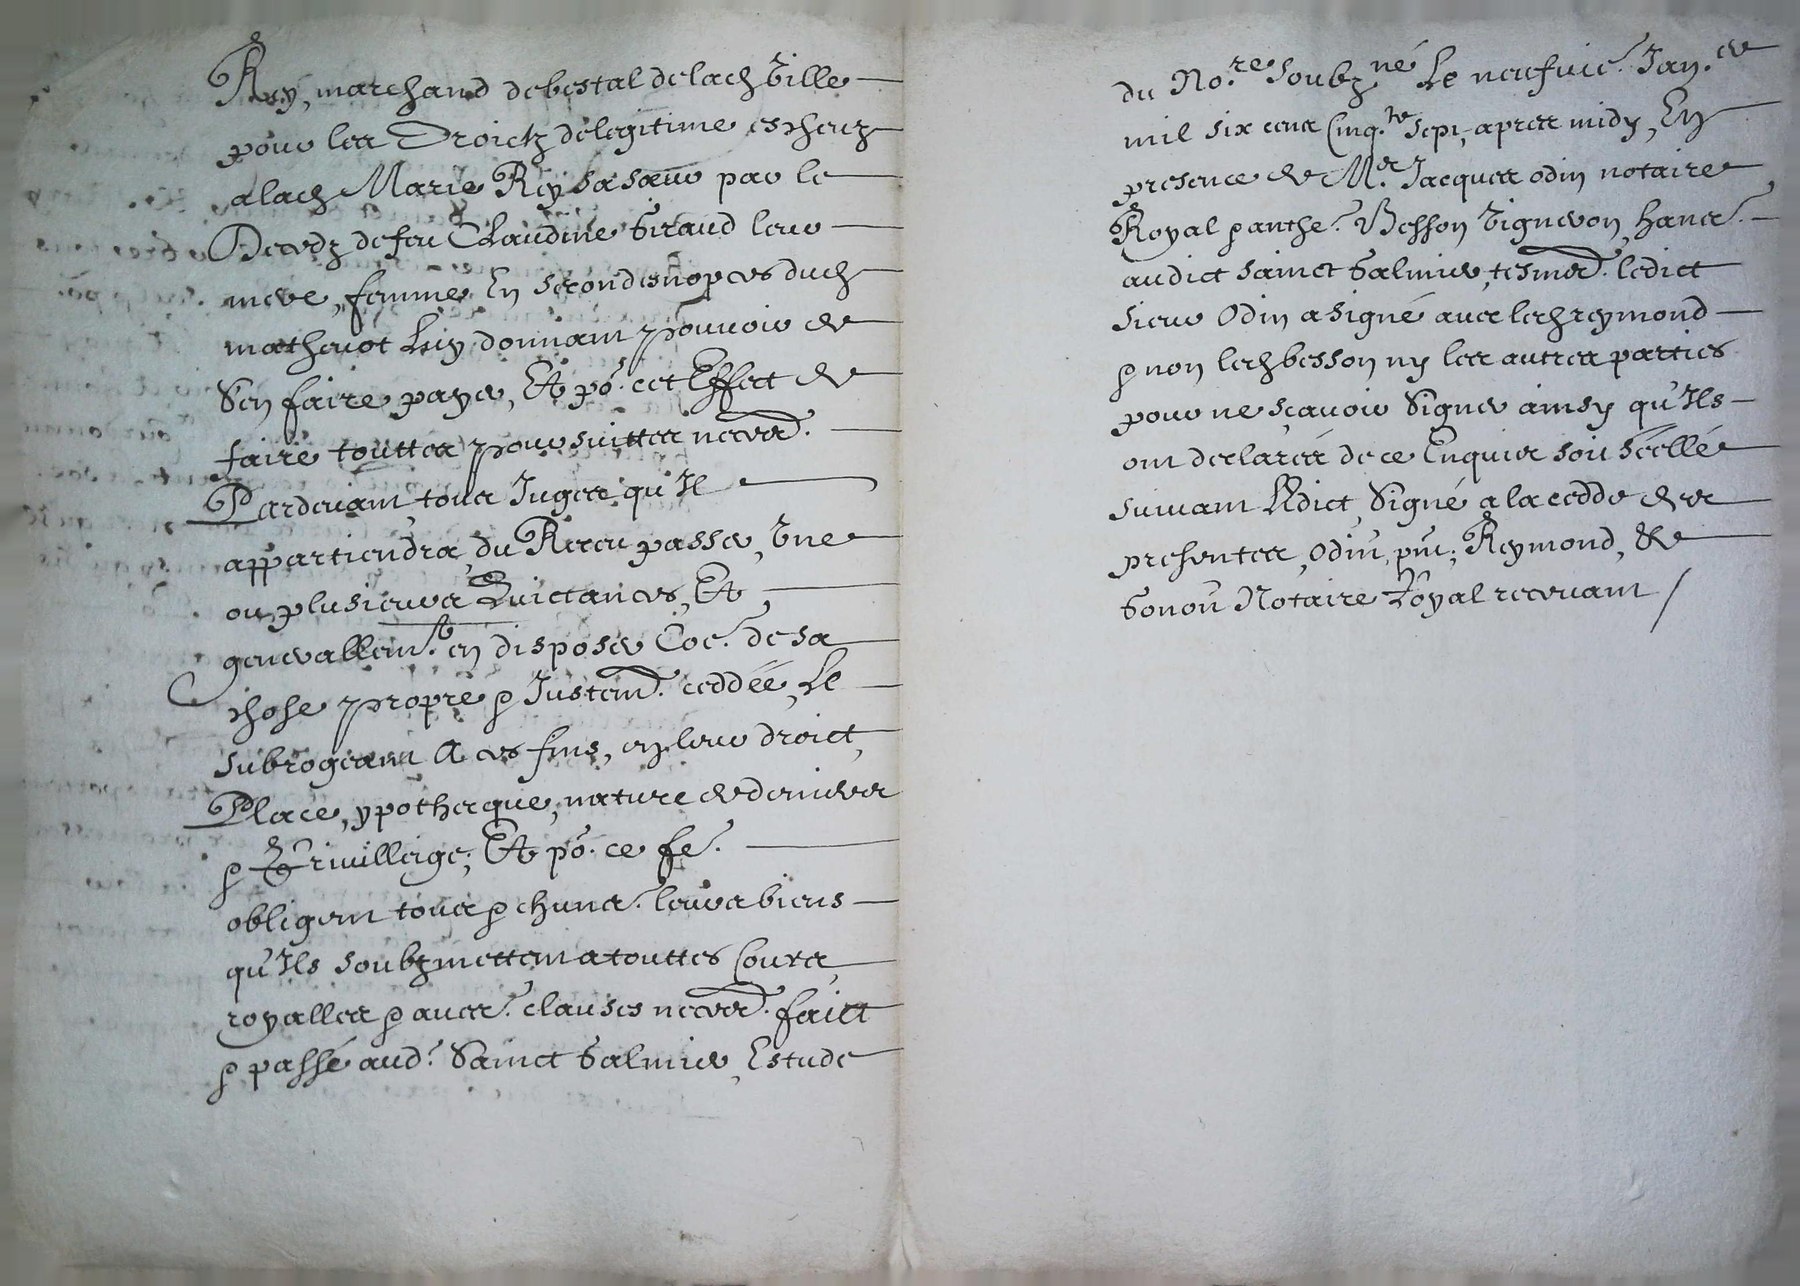 Rey, marchand de bestal de lad ville
pour les droictz de legitime escheuz
a lad Marie Rey sa sœur par le
Decedz de feu Claudine Giraud leur
mere, femme En secondes nopces dud
mathevot Luy donnant pouvoir de
Sen faire payer, Et po.r cet Effect de
faire touttes poursuittes necess.res
Pardevant tous Juges qu'Il
appartiendra, du Receu passer, Une
ou plusieurs Quictances, Et
generallem.t en disposer Coe. de sa
chose propre p Justem.t ceddée, Le
subrogeant A ces fins, en leur droict,
Place, ypotheque, nature de deniers
p Privillege; Et po.r ce fe.
obligent tous p chuns. leurs biens
qu'Ils soubzmettent a touttes Cours
royalles p aues. clauses necess.res faict
p passé aud.t Sainct Galmier, Estude
du No.re soubz.né Le neufvie. Jan.er
mil six cens Cinq.te sept, apres midy, En
presence de M.e Jacques odin notaire
Royal p anthe. Besson vigneron, hans.
audict sainct Galmier, tesmds. ledict
sieur Odin a signé avec led reymond
p non led besson ny les autres parties
pour ne sçavoir Signer ainsy qu'Ils
ont declarés de ce Enquis soit séellé
suivant L'Edict, Signé a la cedde des
presentes, Odin, pnt; Reymond, &
Gonon Notaire Royal recevant /